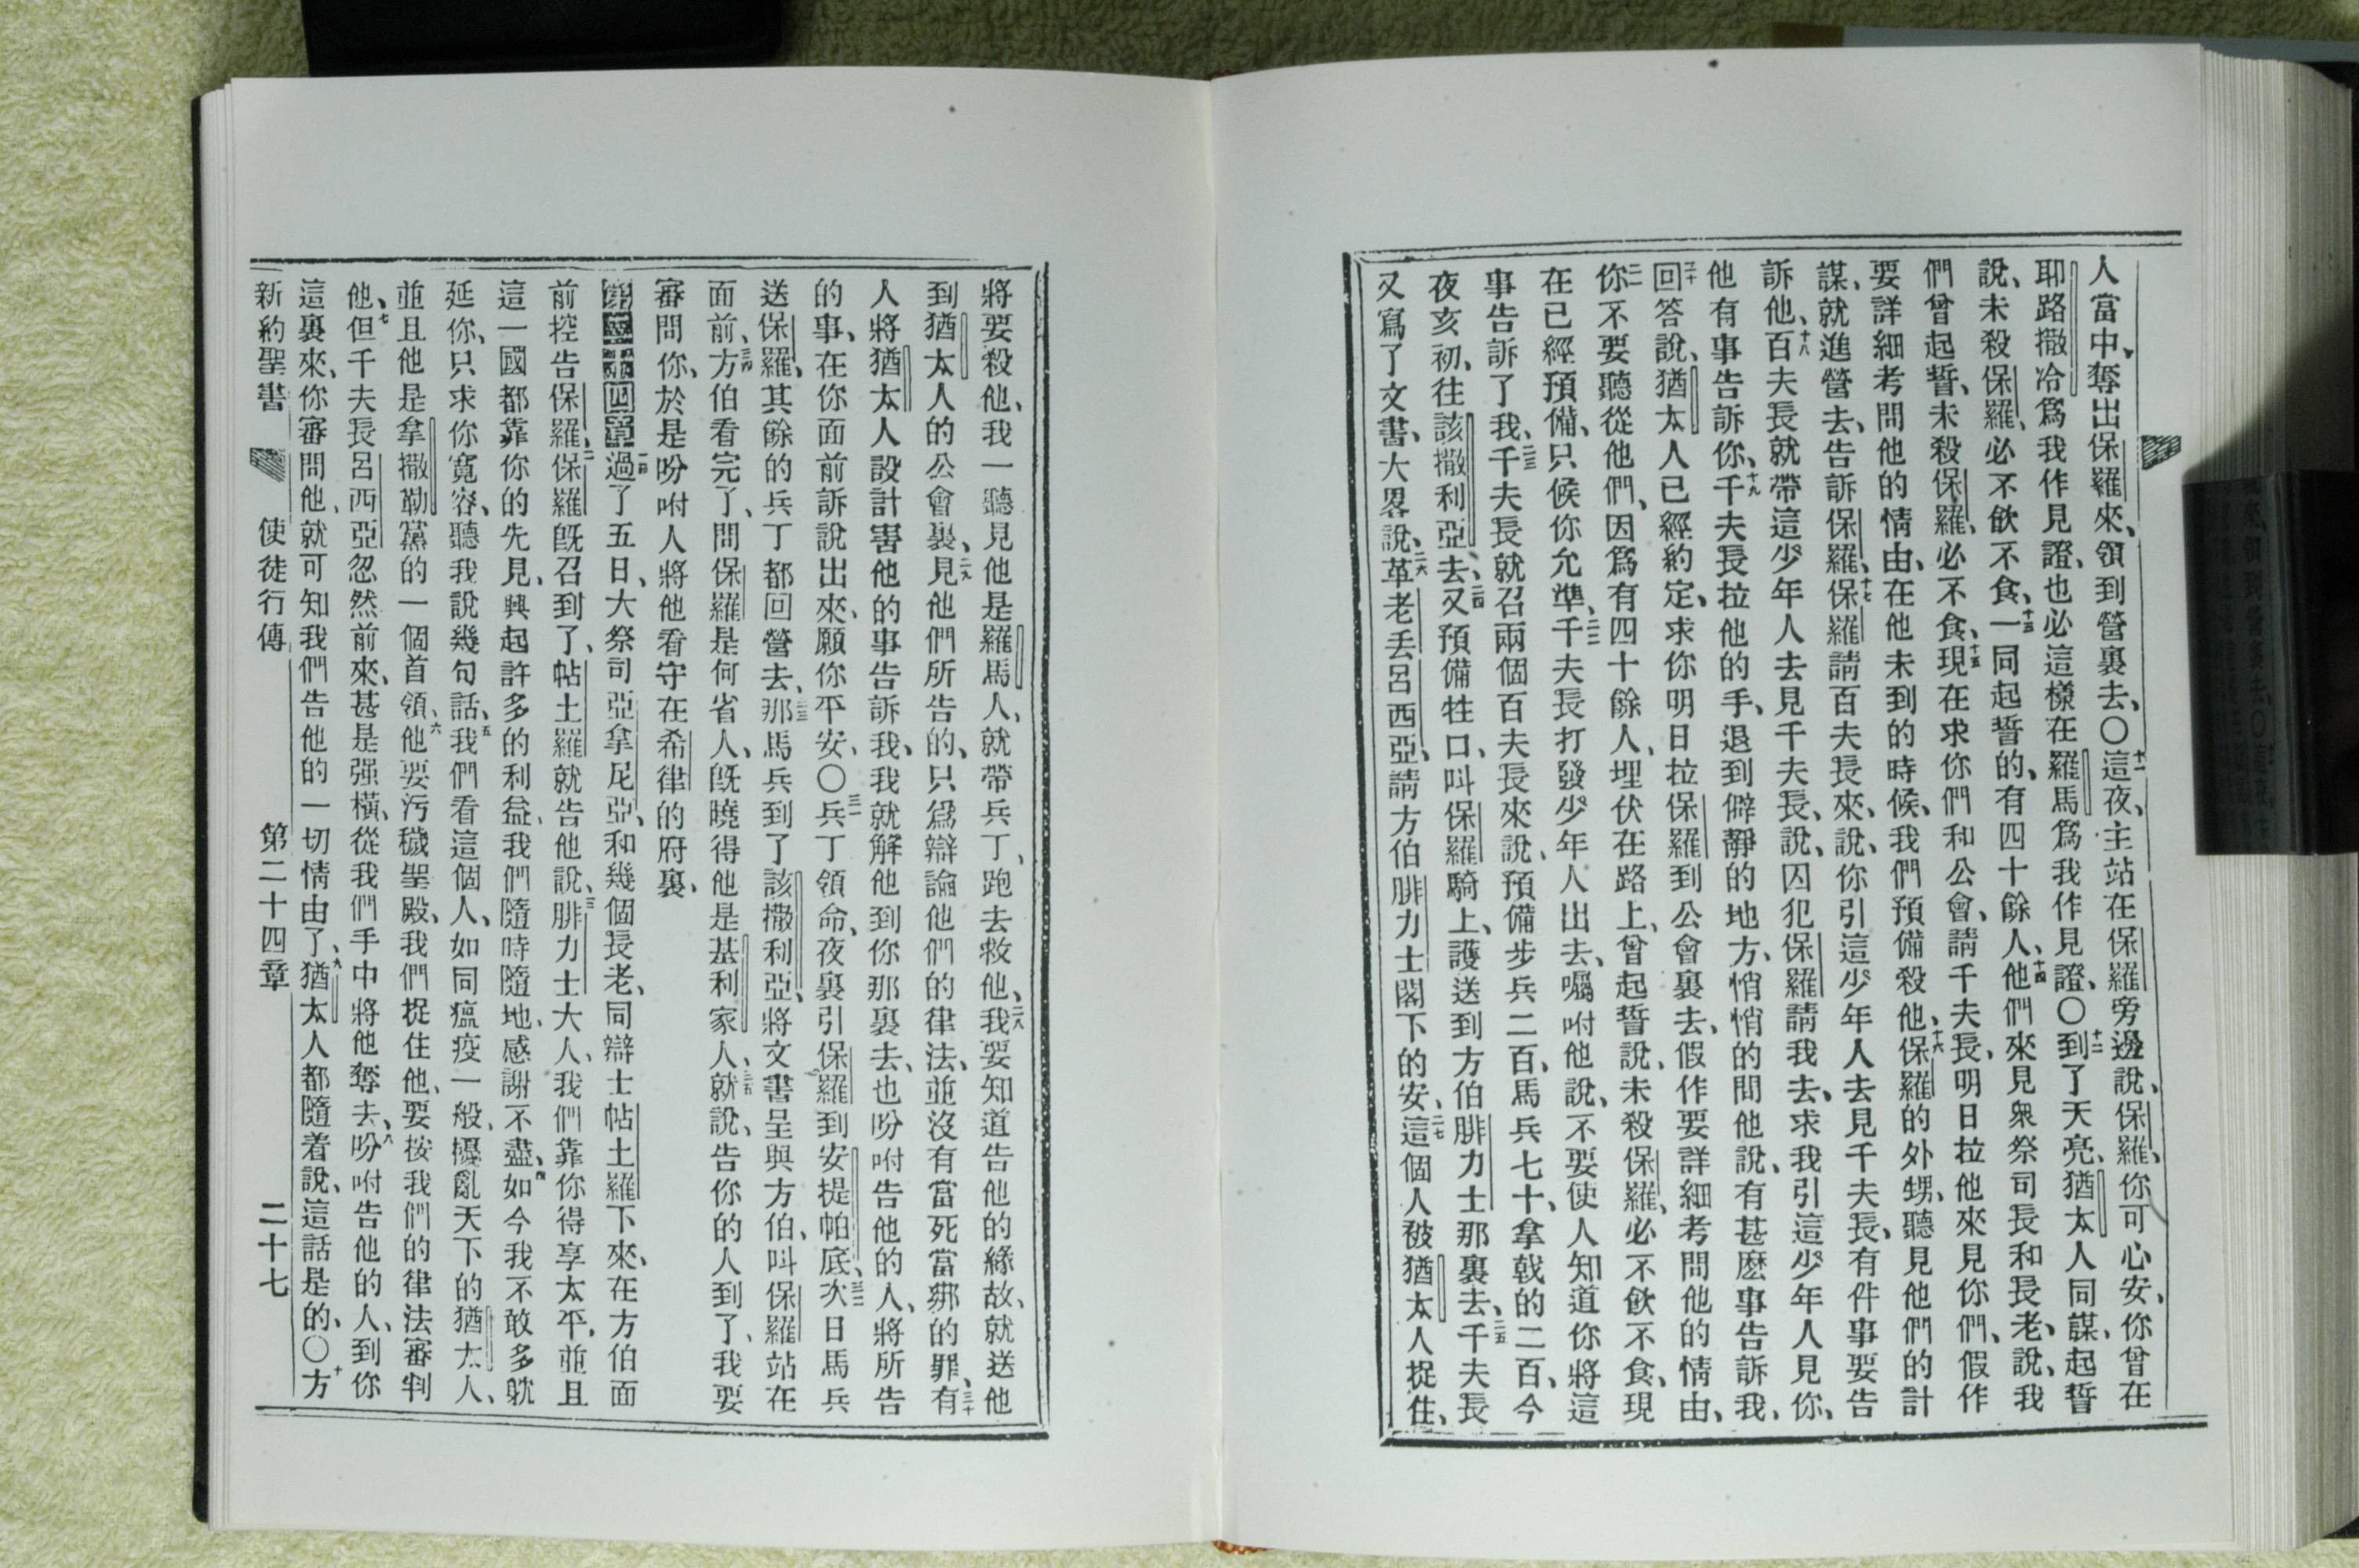 人當中、奪出保羅來、領到營裏去、〇十一這夜、主站在保羅旁邊說、保羅、你可心安、你曾在
耶路撒冷爲我作見證、也必這樣在羅馬爲我作見證、〇十二到了天亮、猶太人同謀、起誓
說、未殺保羅、必不飲不食、十三一同起誓的、有四十餘人、十四他們來見衆祭司長和長老、說、我
們曾起誓、未殺保羅、必不食、十五現在求你們和公會、請千夫長、明日拉他來見你們、假作
要詳細考問他的情由、在他未到的時候、我們預備殺他、十六保羅的外甥、聽見他們的計
謀、就進營去、告訴保羅、十七保羅請百夫長來、說、你引這少年人去見千夫長、有件事要告
訴他、十八百夫長就帶這少年人去見千夫長、說、囚犯保羅請我去、求我引這少年人見你、
他有事告訴你、十九千夫長拉他的手、退到僻靜的地方、悄悄的問他說、有甚麽事告訴我、
二十回答說、猶太人已經約定、求你明日拉保羅到公會裏去、假作要詳細考問他的情由、
二一你不要聽從他們、因爲有四十餘人、埋伏在路上、曾起誓說、未殺保羅、必不飲不食、現
在已經預備、只候你允準、二二千夫長打發少年人出去、囑咐他說、不要使人知道你將這
事告訴了我、二三千夫長就召兩個百夫長來說、預備步兵二百、馬兵七十、拿戟的二百、今
夜亥初、往該撒利亞去、二四又預備牲口、叫保羅騎上、護送到方伯腓力士那裏去、二五千夫長
又寫了文書、大畧說、二六革老丢呂西亞、請方伯腓力士閣下的安、二七這個人被猶太人捉住、
將要殺他、我一聽見他是羅馬人、就帶兵丁、跑去救他、二八我要知道告他的緣故、就送他
到猶太人的公會裏、二九見他們所告的、只爲辯論他們的律法、並沒有當死當綁的罪、三十有
人將猶太人設計害他的事告訴我、我就解他到你那裏去、也吩咐告他的人、將所告
的事、在你面前訴說出來、願你平安、〇三一兵丁領命、夜裏引保羅到安提帕底、三二次日馬兵
送保羅、其餘的兵丁都回營去、三三那馬兵到了該撒利亞、將文書呈與方伯、叫保羅站在
面前、三四方伯看完了、問保羅是何省人、旣曉得他是基利家人、三五就說、告你的人到了、我要
審問你、於是吩咐人將他看守在希律的府裏、
第二十四章一過了五日、大祭司亞拿尼亞、和幾個長老、同辯士帖土羅下來、在方伯面
前控告保羅、二保羅旣召到了、帖土羅就告他說、三腓力士大人、我們靠你得享太平、並且
這一國都靠你的先見、興起許多的利益、我們隨時隨地、感謝不盡、四如今我不敢多躭
延你、只求你寬容、聽我說幾句話、五我們看這個人、如同瘟疫一般、擾亂天下的猶太人、
並且他是拿撒勒黨的一個首領、六他要污穢聖殿、我們捉住他、要按我們的律法審判
他、七但千夫長呂西亞忽然前來、甚是强橫、從我們手中將他奪去、八吩咐告他的人、到你
這裏來、你審問他、就可知我們告他的一切情由了、九猶太人都隨着說、這話是的、〇十方
新約聖書 使徒行傳 第二十四章 二十七